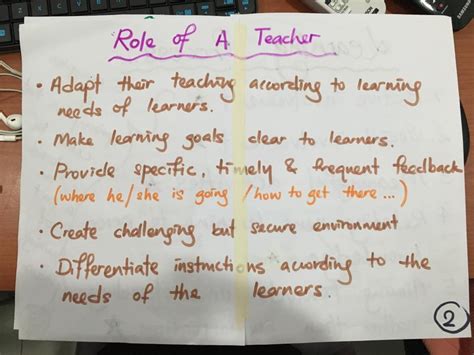 Role of A Teacher
• Adapt their teaching according to learning
needs of learners.
• Make learning goals clear to learners.
• Provide specific, timely & frequent feedback
(where he/she is going / how to get there ...)
• Create challenging but secure environment
• Differentiate instructions according to the
needs of the learners.
2